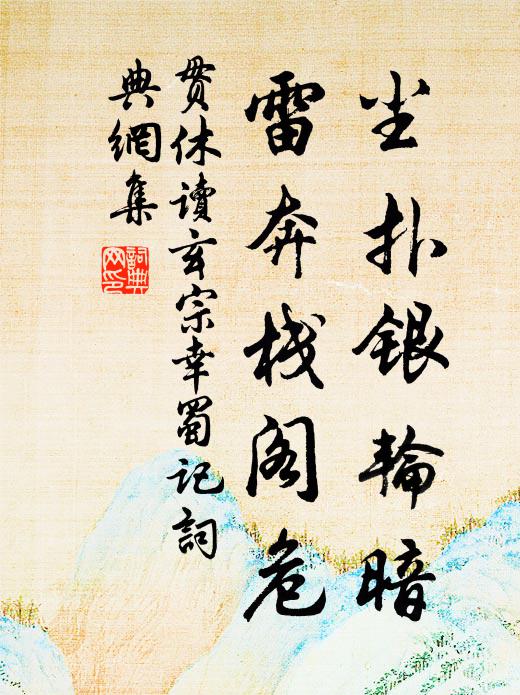 尘扑银轮暗
雷奔栈阁危
贯休读玄宗幸蜀记词
典網集
詞典网印